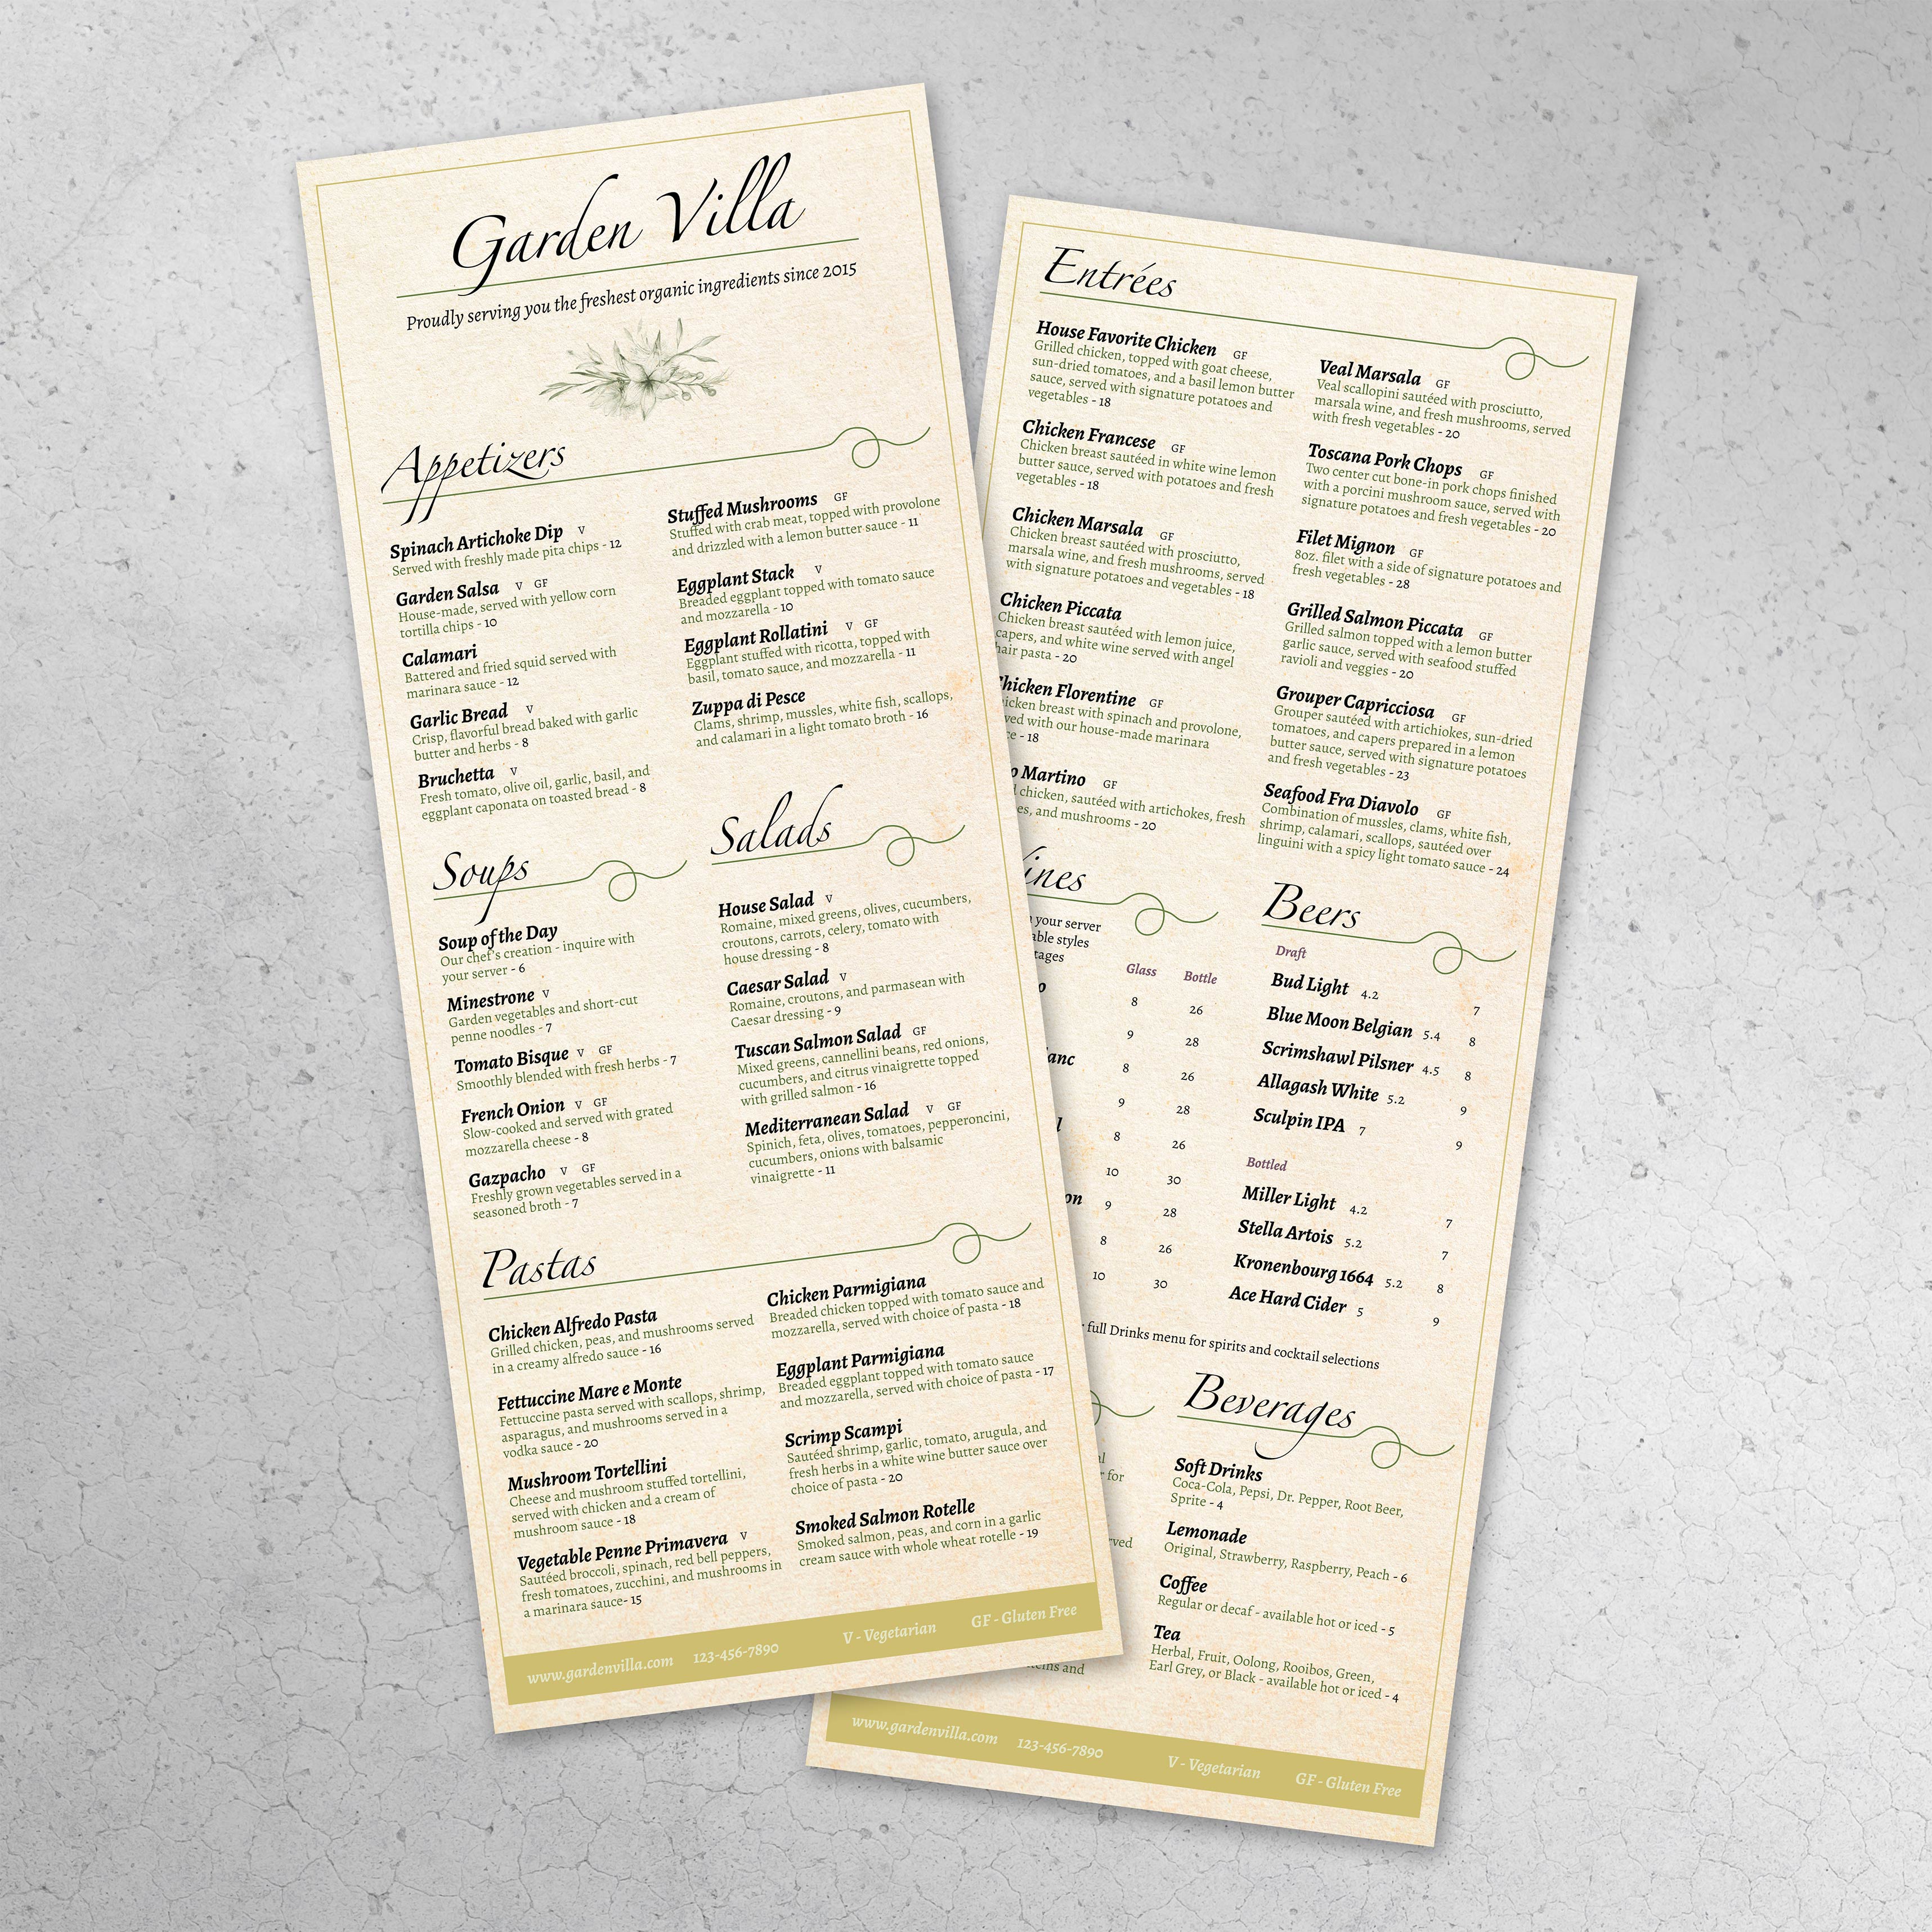 Garden Villa
Proudly serving you the freshest organic ingredients since 2015
Appetizers
Spinach Artichoke Dip V
Served with freshly made pita chips - 12
Garden Salsa V GF
House-made, served with yellow corn
tortilla chips - 10
Calamari
Battered and fried squid served with
marinara sauce - 12
Garlic Bread V
Crisp, flavorful bread baked with garlic
butter and herbs - 8
Bruchetta V
Fresh tomato, olive oil, garlic, basil, and
eggplant caponata on toasted bread - 8
Stuffed Mushrooms GF
Stuffed with crab meat, topped with provolone
and drizzled with a lemon butter sauce - 11
Eggplant Stack V
Breaded eggplant topped with tomato sauce
and mozzarella - 10
Eggplant Rollatini V GF
Eggplant stuffed with ricotta, topped with
basil, tomato sauce, and mozzarella - 11
Zuppa di Pesce
Clams, shrimp, mussles, white fish, scallops,
and calamari in a light tomato broth - 16
Soups
Soup of the Day
Our chef's creation - inquire with
your server - 6
Minestrone V
Garden vegetables and short-cut
penne noodles - 7
Tomato Bisque V GF
Smoothly blended with fresh herbs - 7
French Onion V GF
Slow-cooked and served with grated
mozzarella cheese - 8
Gazpacho V GF
Freshly grown vegetables served in a
seasoned broth - 7
Salads
House Salad V
Romaine, mixed greens, olives, cucumbers,
croutons, carrots, celery, tomato with
house dressing - 8
Caesar Salad V
Romaine, croutons, and parmasean with
Caesar dressing - 9
Tuscan Salmon Salad GF
Mixed greens, cannellini beans, red onions,
cucumbers, and citrus vinaigrette topped
with grilled salmon - 16
Mediterranean Salad V GF
Spinich, feta, olives, tomatoes, pepperoncini,
cucumbers, onions with balsamic
vinaigrette - 11
Pastas
Chicken Alfredo Pasta
Grilled chicken, peas, and mushrooms served
in a creamy alfredo sauce - 16
Fettuccine Mare e Monte
Fettuccine pasta served with scallops, shrimp,
asparagus, and mushrooms served in a
vodka sauce - 20
Mushroom Tortellini
Cheese and mushroom stuffed tortellini,
served with chicken and a cream of
mushroom sauce - 18
Vegetable Penne Primavera V
Sautéed broccoli, spinach, red bell peppers,
fresh tomatoes, zucchini, and mushrooms in
a marinara sauce- 15
Chicken Parmigiana
Breaded chicken topped with tomato sauce and
mozzarella, served with choice of pasta - 18
Eggplant Parmigiana
Breaded eggplant topped with tomato sauce
and mozzarella, served with choice of pasta - 17
Scrimp Scampi
Sautéed shrimp, garlic, tomato, arugula, and
fresh herbs in a white wine butter sauce over
choice of pasta - 20
Smoked Salmon Rotelle
Smoked salmon, peas, and corn in a garlic
cream sauce with whole wheat rotelle - 19
www.gardenvilla.com 123-456-7890 V - Vegetarian GF - Gluten Free
Entrées
House Favorite Chicken GF
Grilled chicken, topped with goat cheese,
sun-dried tomatoes, and a basil lemon butter
sauce, served with signature potatoes and
vegetables - 18
Chicken Francese GF
Chicken breast sautéed in white wine lemon
butter sauce, served with potatoes and fresh
vegetables - 18
Chicken Marsala GF
Chicken breast sautéed with prosciutto,
marsala wine, and fresh mushrooms, served
with signature potatoes and vegetables - 18
Chicken Piccata
Chicken breast sautéed with lemon juice,
capers, and white wine served with angel
hair pasta - 20
Chicken Florentine GF
breast with spinach and provolone,
with our house-made marinara
- 18
Martino GF
chicken, sautéed with artichokes, fresh
and mushrooms - 20
Veal Marsala GF
Veal scallopini sautéed with prosciutto,
marsala wine, and fresh mushrooms, served
with fresh vegetables - 20
Toscana Pork Chops GF
Two center cut bone-in pork chops finished
with a porcini mushroom sauce, served with
signature potatoes and fresh vegetables - 20
Filet Mignon GF
8oz. filet with a side of signature potatoes and
fresh vegetables - 28
Grilled Salmon Piccata GF
Grilled salmon topped with a lemon butter
garlic sauce, served with seafood stuffed
ravioli and veggies - 20
Grouper Capricciosa GF
Grouper sautéed with artichiokes, sun-dried
tomatoes, and capers prepared in a lemon
butter sauce, served with signature potatoes
and fresh vegetables - 23
Seafood Fra Diavolo GF
Combination of mussles, clams, white fish,
shrimp, calamari, scallops, sautéed over
linguini with a spicy light tomato sauce - 24
your server
styles
Glass Bottle
8 26
9 28
8 26
9 28
8 26
10 30
9 28
8 26
10 30
Beers
Draft
Bud Light 4.2 7
Blue Moon Belgian 5.4 8
Scrimshawl Pilsner 4.5 8
Allagash White 5.2 9
Sculpin IPA 7 9
Bottled
Miller Light 4.2 7
Stella Artois 5.2 7
Kronenbourg 1664 5.2 8
Ace Hard Cider 5 9
full Drinks menu for spirits and cocktail selections
for
and
Beverages
Soft Drinks
Coca-Cola, Pepsi, Dr. Pepper, Root Beer,
Sprite - 4
Lemonade
Original, Strawberry, Raspberry, Peach - 6
Coffee
Regular or decaf - available hot or iced - 5
Tea
Herbal, Fruit, Oolong, Rooibos, Green,
Earl Grey, or Black - available hot or iced - 4
www.gardenvilla.com 123-456-7890 V - Vegetarian GF - Gluten Free